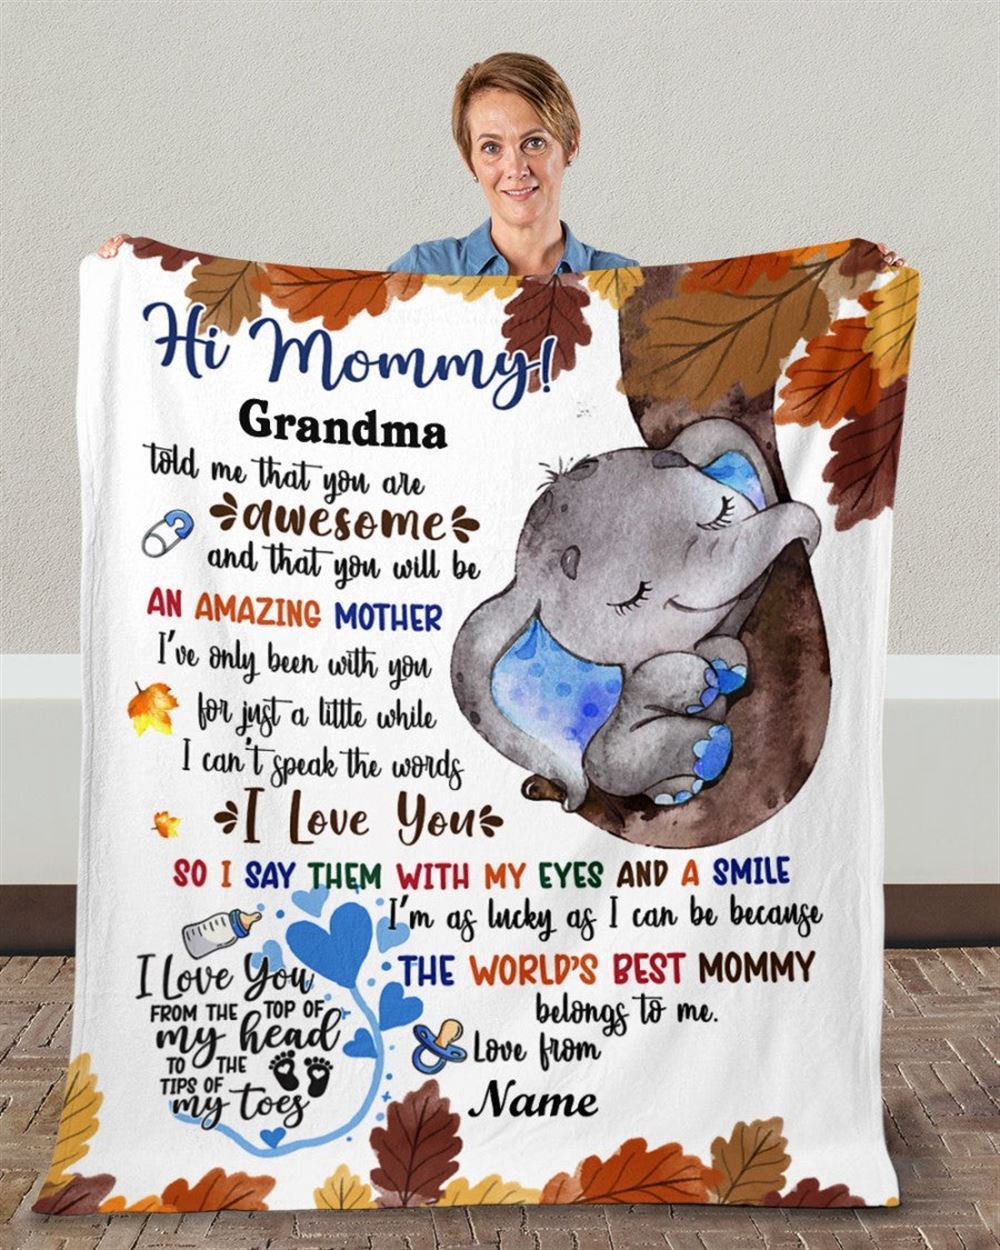 Hi Mommy!
Grandma
told me that you are
awesome
and that you will be
AN AMAZING MOTHER
I've only been with you
for just a little while
I can't speak the words
I Love You
SO I SAY THEM WITH MY EYES AND A SMILE
I'm as lucky as I can be because
THE WORLD'S BEST MOMMY
belongs to me.
Love from
Name
I Love You
FROM THE TOP OF
my head
TO THE
TIPS OF
my toes